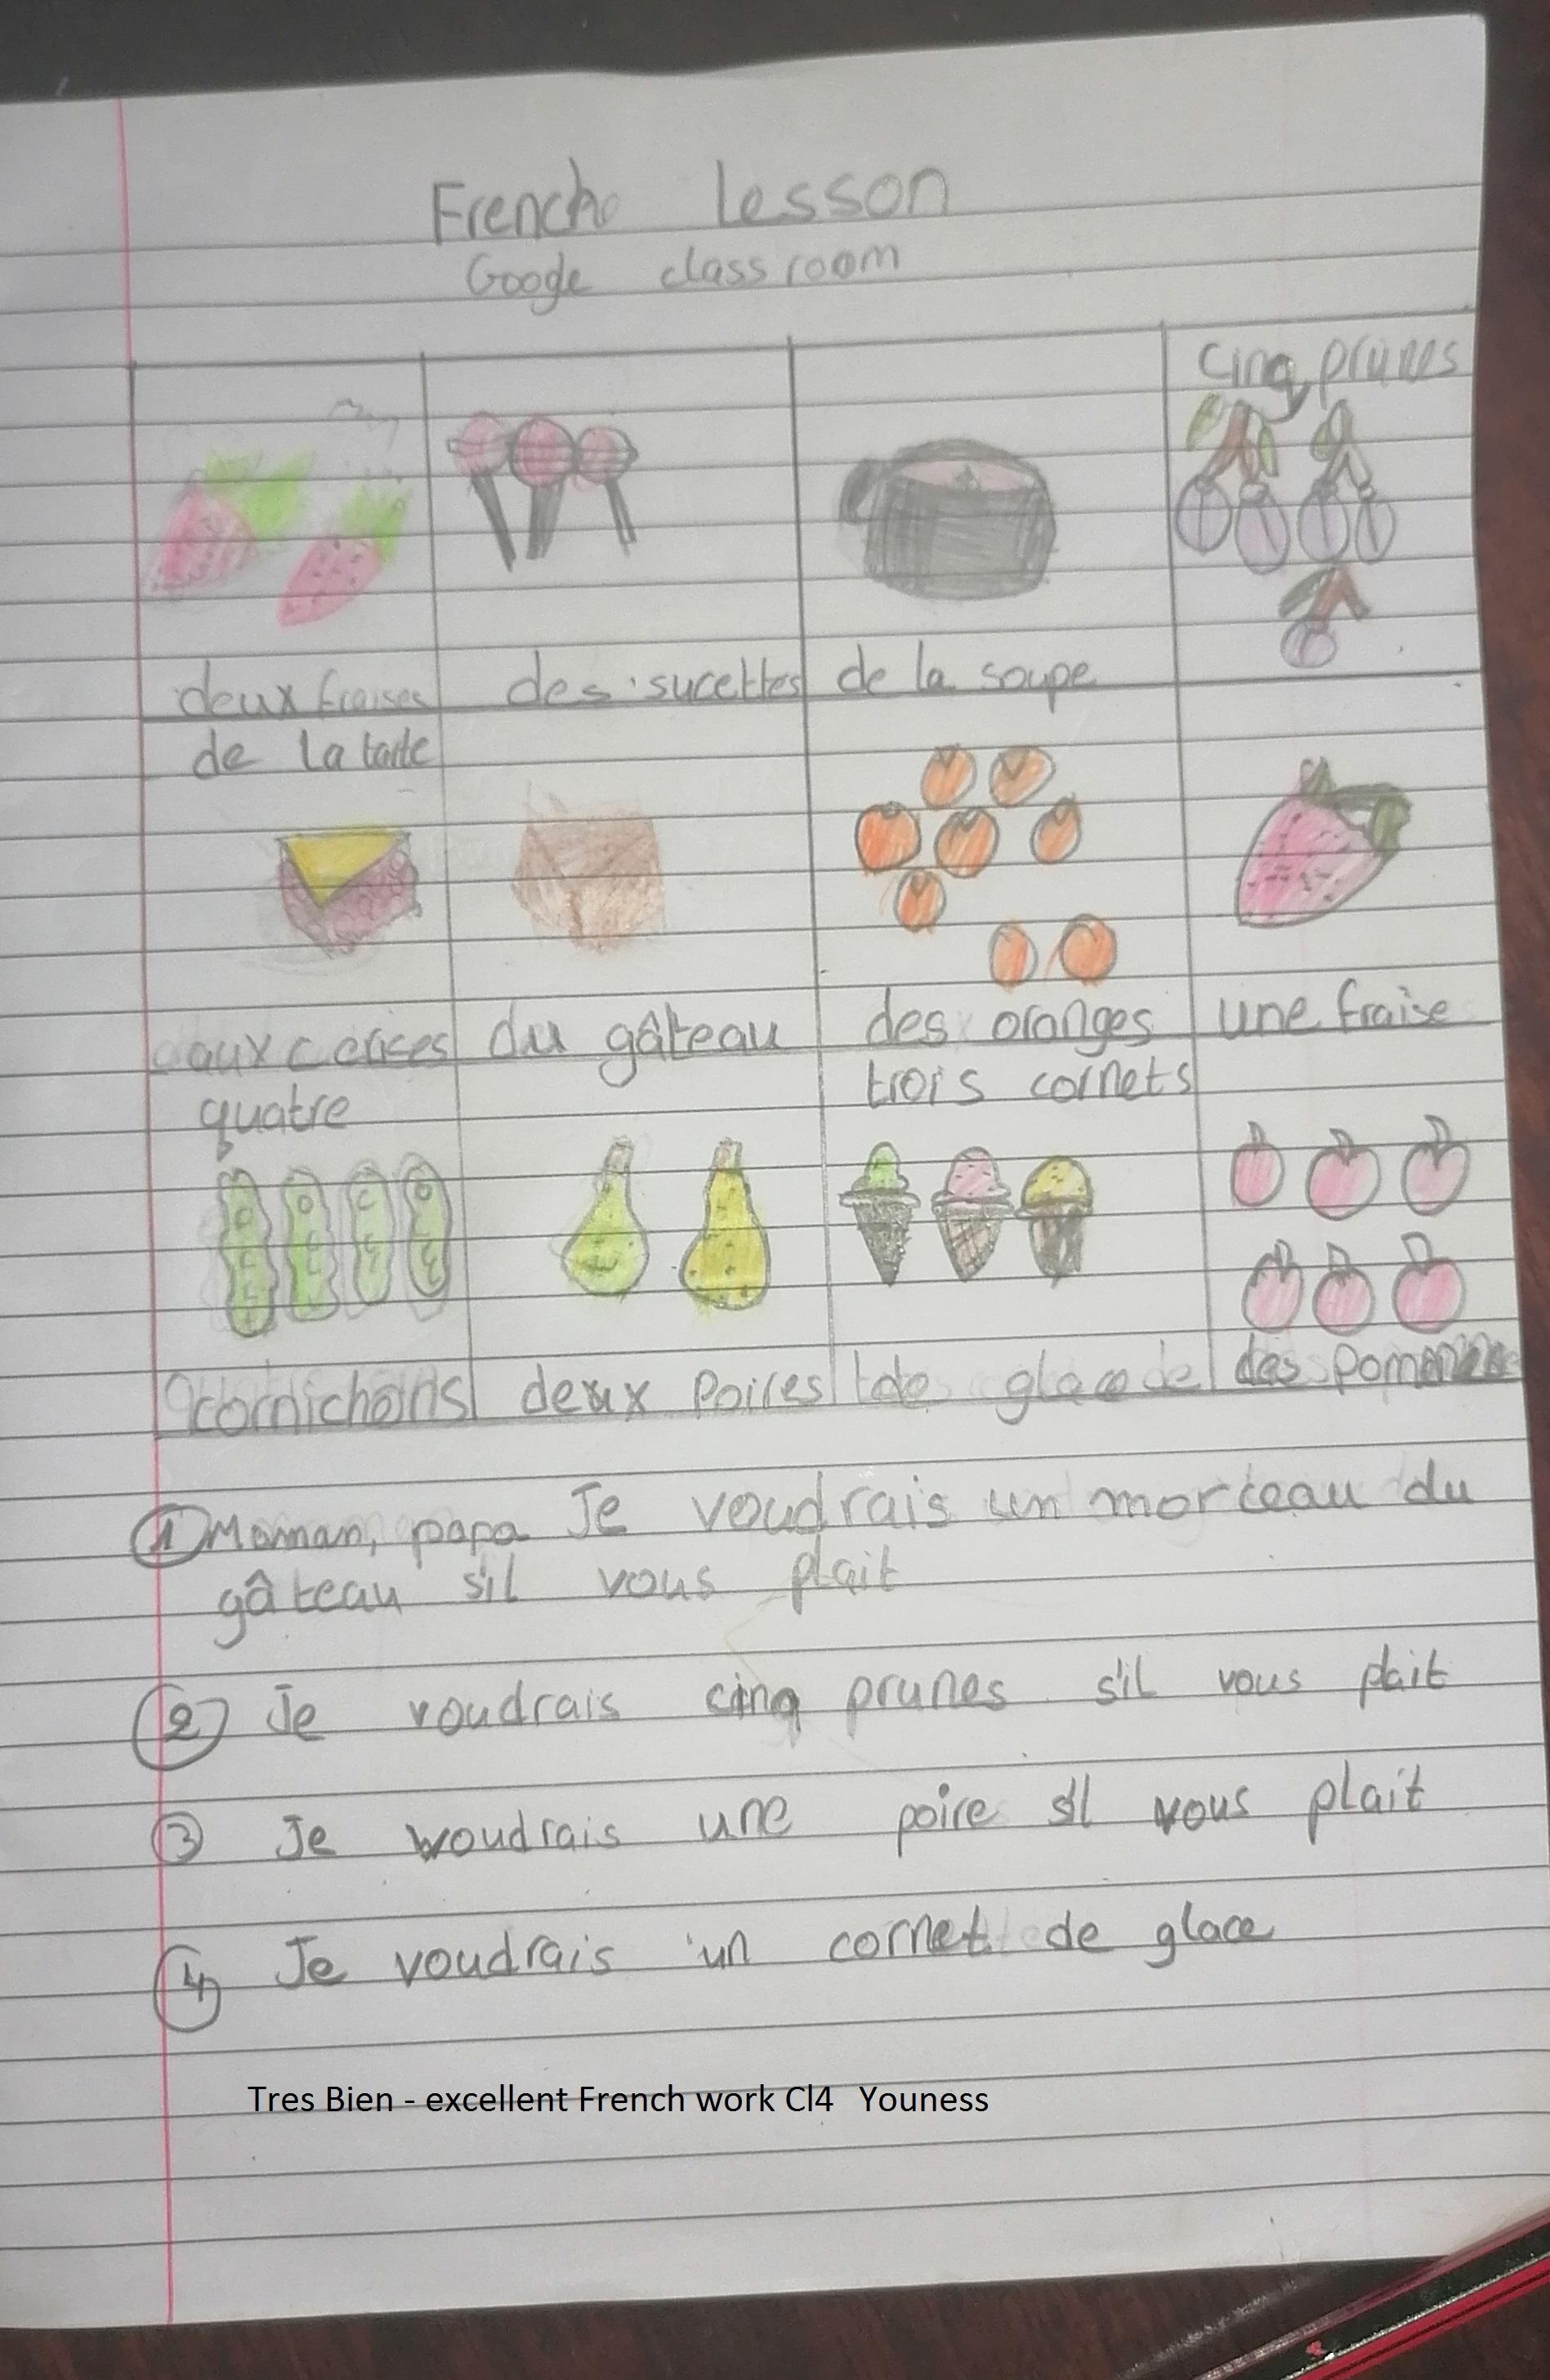 French Lesson
Google classroom
cinq prunes
deux fraises des sucettes de la soupe
de la tarte
aux cerises du gâteau des oranges une fraise
quatre trois cornets
cornichons deux poires de glace des pommes
1 Maman, papa Je voudrais un morceau du
gâteau s'il vous plait
2 Je voudrais cinq prunes s'il vous plait
3 Je voudrais une poire s'il vous plait
4 Je voudrais un cornet de glace
Tres Bien - excellent French work Cl4 Youness